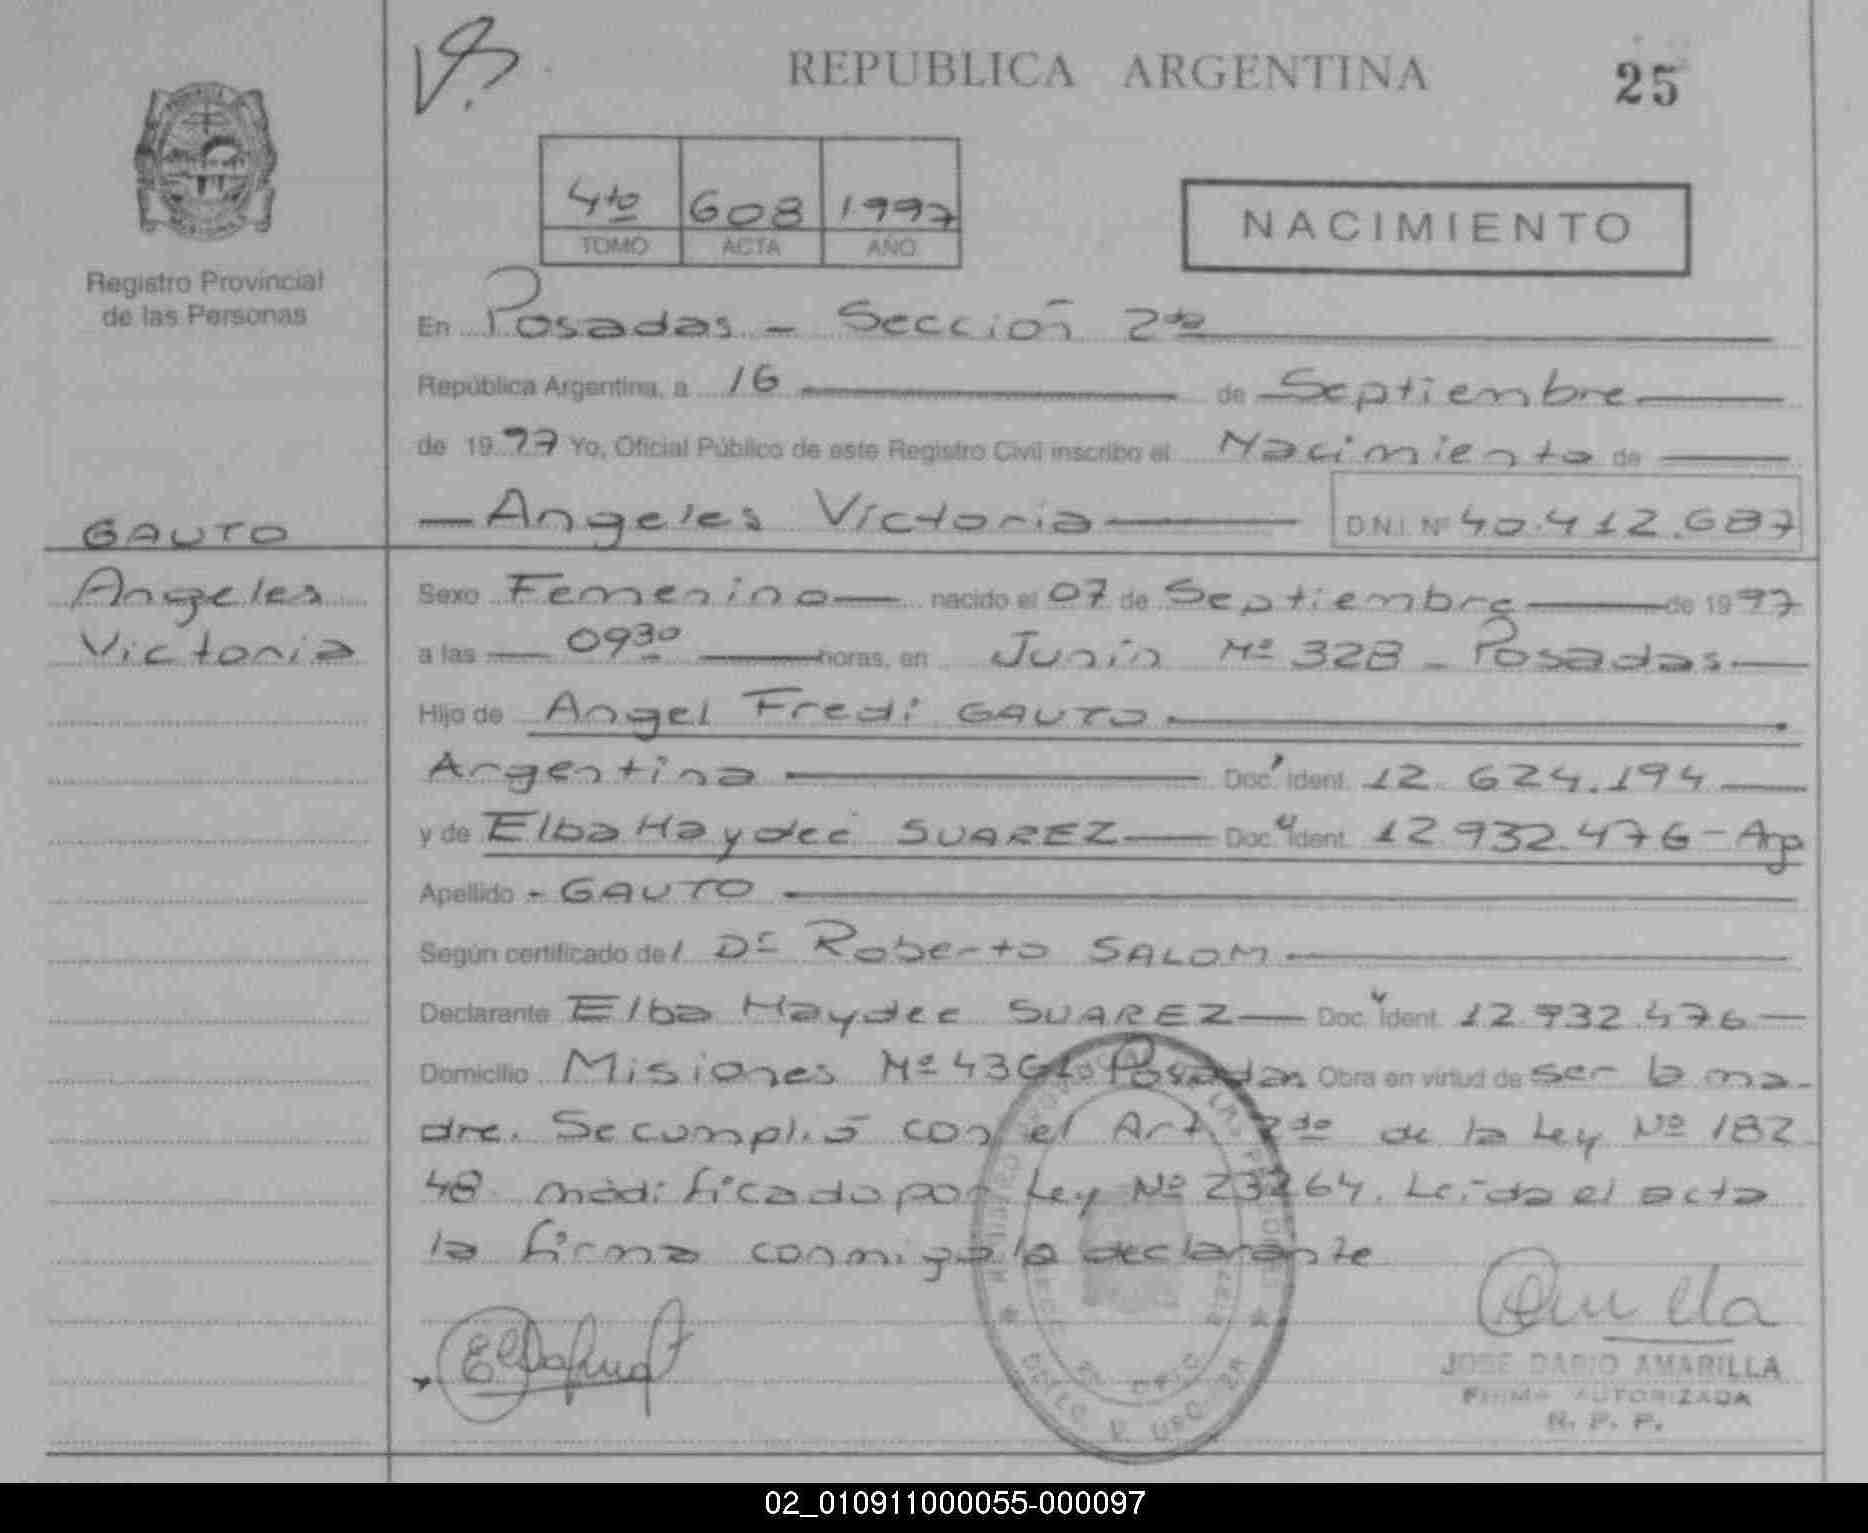 REPUBLICA ARGENTINA
25
4to 608 1997
TOMO ACTA AÑO
NACIMIENTO
Registro Provincial
de las Personas
En Posadas - Sección 2da
República Argentina, a 16 de Septiembre
de 1997 Yo, Oficial Público de este Registro Civil inscribo el Nacimiento de
Angeles Victoria D.N.I. Nº 40.412.687
GAUTO
Angeles
Victoria
Sexo Femenino nacido el 07 de Septiembre de 1997
a las 0930 horas, en Junín Nº 328 - Posadas
Hijo de Angel Fredi GAUTO
Argentina Doc. Ident. 12.624.194
y de Elba Haydee SUAREZ Doc. Ident. 12.932.476 - Arg
Apellido - GAUTO
Según certificado del Dr Roberto SALOM
Declarante Elba Haydee SUAREZ Doc. Ident. 12.932.476
Domicilio Misiones Nº Posadas Obra en virtud de ser la ma-
dre. Se cumplió con el Art. 2do de la Ley Nº 182
48 modificado por Ley Nº 23264. Leída el acta
la firma conmigo la declarante
JOSE DARIO AMARILLA
FIRMA AUTORIZADA
R. P. P.
02_010911000055-000097